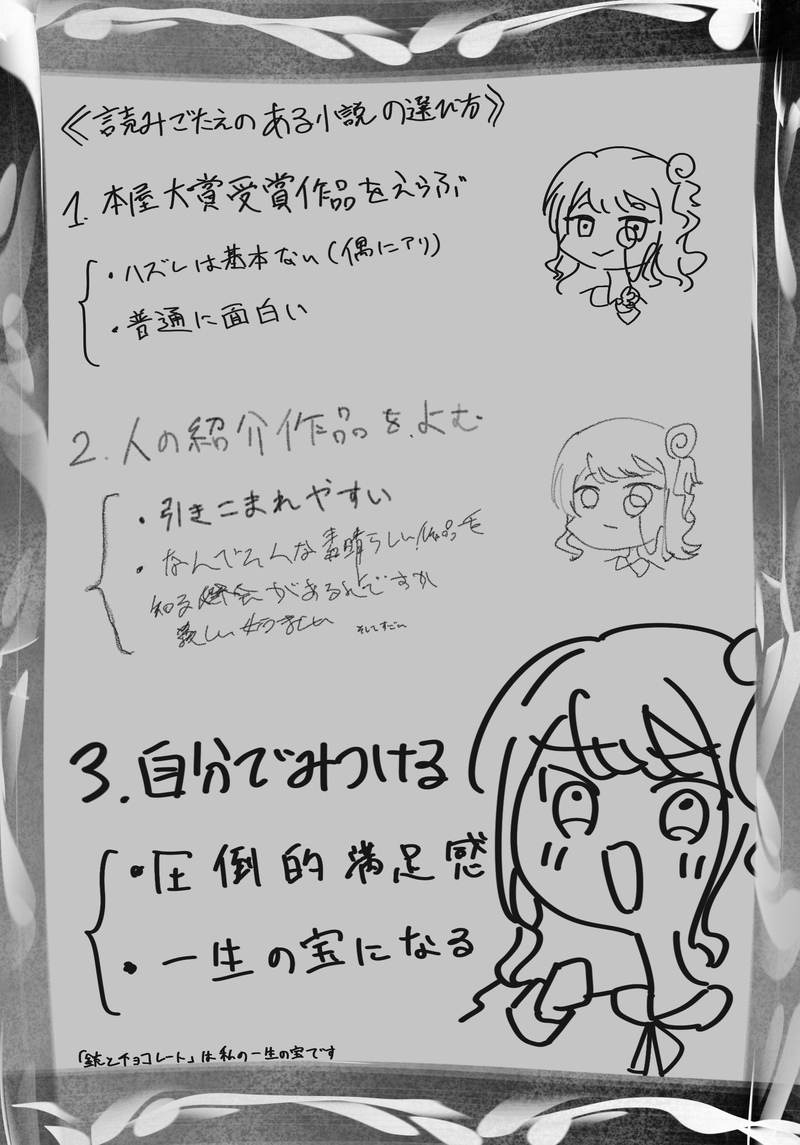 《読みごたえのある小説の選び方》
1. 本屋大賞受賞作品をえらぶ
・ハズレは基本ない(偶にアリ)
・普通に面白い
2. 人の紹介作品をよむ
・引きこまれやすい
・なんでそんな素晴らしい作品を
知る機会があるんですか
羨しい 妬ましい そしてすごい
3. 自分でみつける
・圧倒的満足感
・一生の宝になる
「銃とチョコレート」は私の一生の宝です